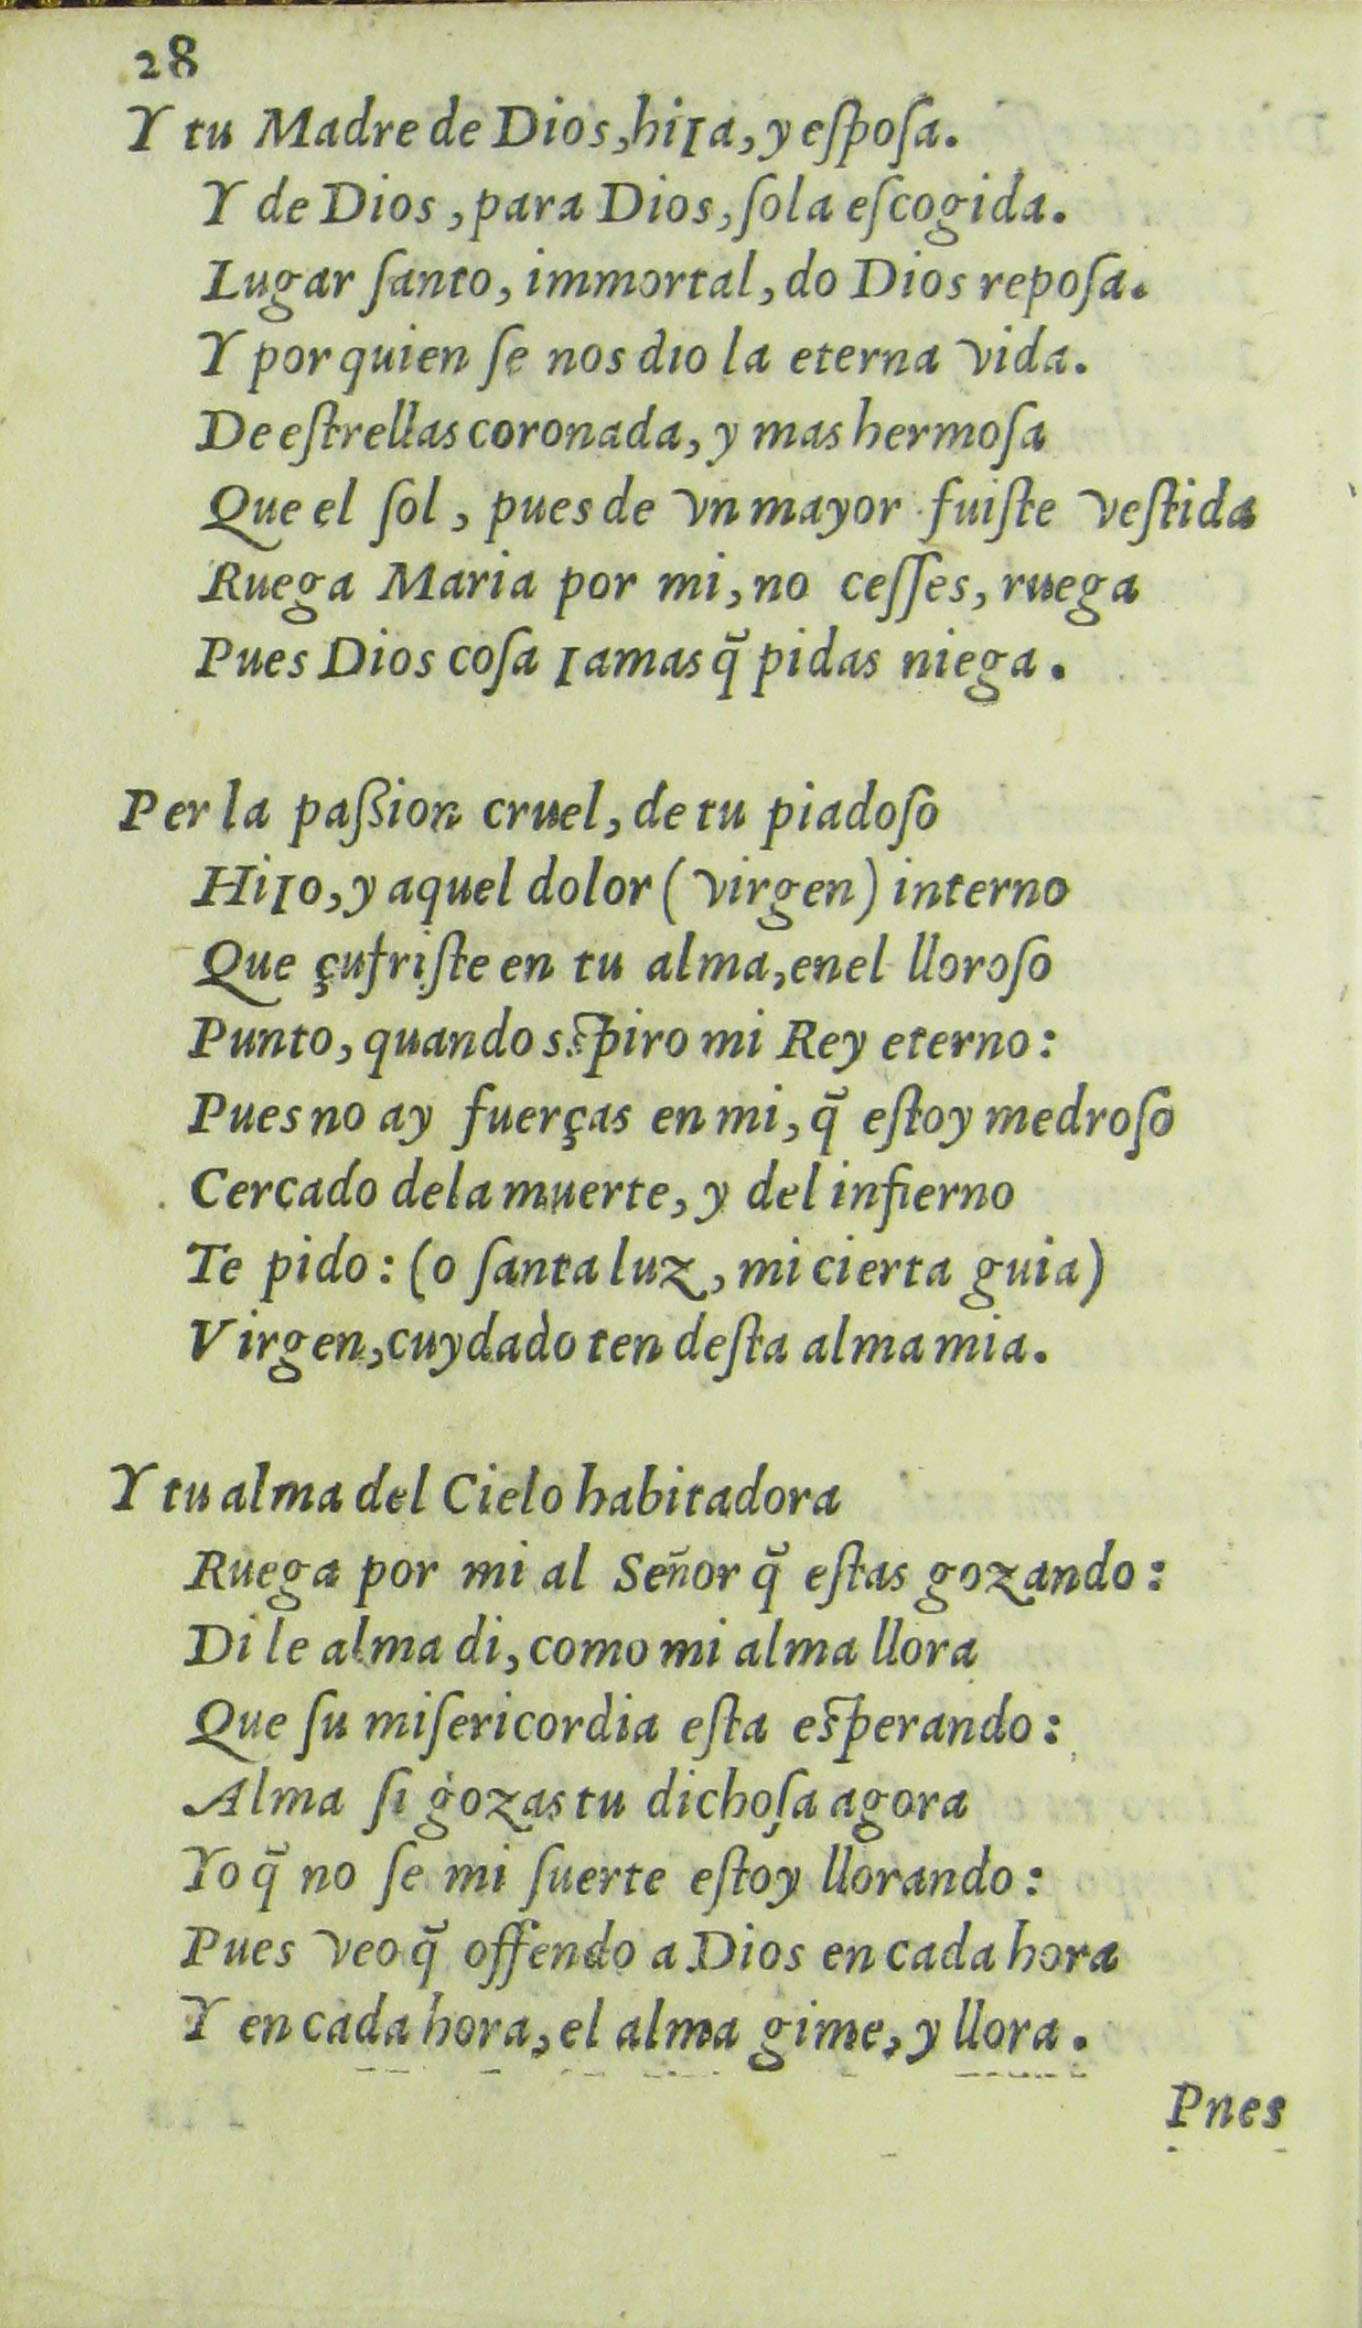 28
Y tu Madre de Dios, hiIa, y eſpoſa.
Y de Dios, para Dios, ſola eſcogida.
Lugar ſanto, immortal, do Dios repoſa.
Y por quien ſe nos dıo la eterna vida.
De eſtrellas coronada, y mas hermoſa
Que el ſol, pues de vn mayor fuiſte veſtida
Ruega Maria por mi, no ceſſes, ruega
Pues Dios coſa Iamas q̃ pidas niega.
Per la paſsion cruel, de tu piadoſo
HiIo, y aquel dolor (virgen) interno
Que çufriſte en tu alma, enel lloroſo
Punto, quando sſpiro mi Rey eterno:
Pues no ay fuerças en mi, q̃ eſtoy medroſo
Cercado dela muerte, y del infierno
Te pido: (o ſanta luz, mi cierta guia)
Virgen, cuydado ten deſta alma mia.
Y tu alma del Cielo habitadora
Ruega por mi al Señor q̃ eſtas gozando:
Di le alma di, como mi alma llora
Que ſu miſericordia eſta eſperando:
Alma ſi gozas tu dichoſa agora
Yo q̃ no ſe mi ſuerte eſtoy llorando:
Pues veo q̃ offendo a Dios en cada hora
Y en cada hora, el alma gime, y llora.
Pnes